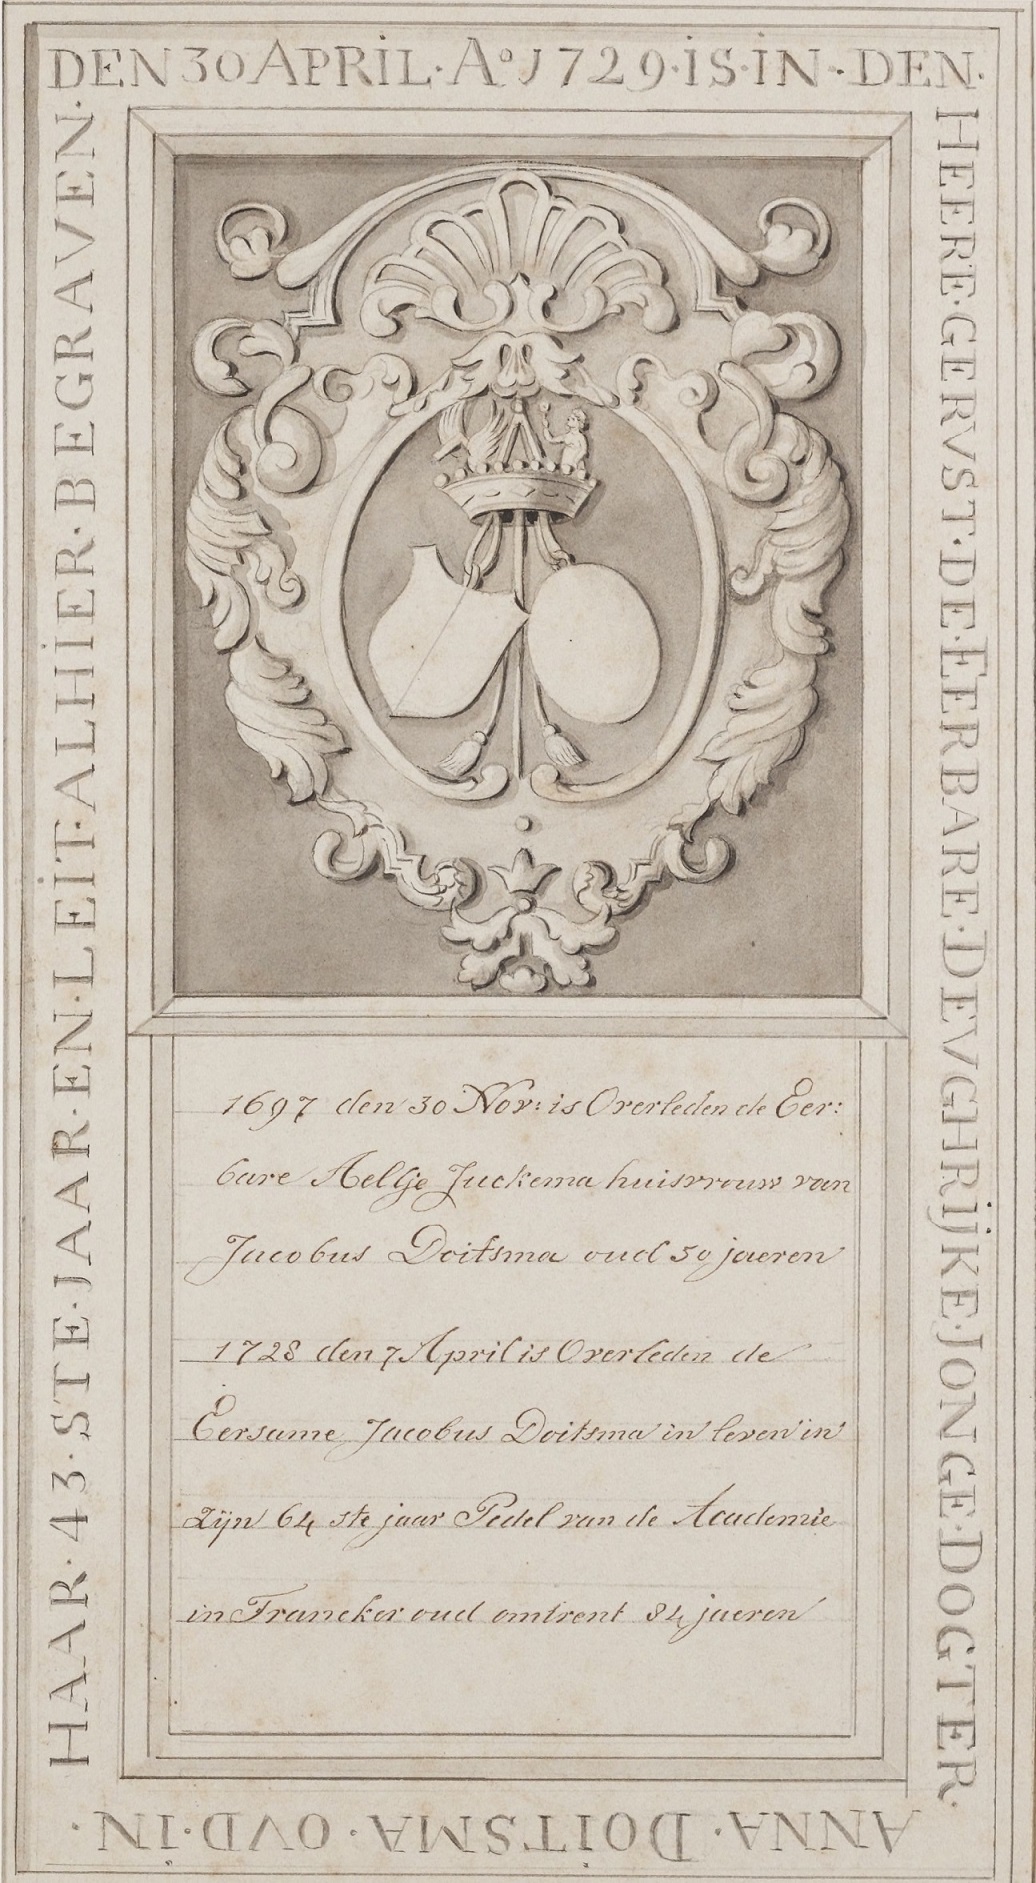 DEN 30 APRIL · Aº 1729 · IS · IN · DEN ·
HEERE · GERVST · DE · EERBARE · DEVGHRIJKE · JONGE · DOGTER ·
ANNA · DOITSMA · OVD · IN ·
HAAR · 43 · STE · JAAR · EN · LEIT · ALHIER · BEGRAVEN ·
1697 den 30 Nov: is Overleden de Eer:
bare Aeltje Juckema huisvrouw van
Jacobus Doitsma oud 50 jaeren
1728 den 7 April is Overleden de
Eersame Jacobus Doitsma in leven in
zijn 64 ste jaar Pedel van de Academie
in Franeker oud omtrent 84 jaeren